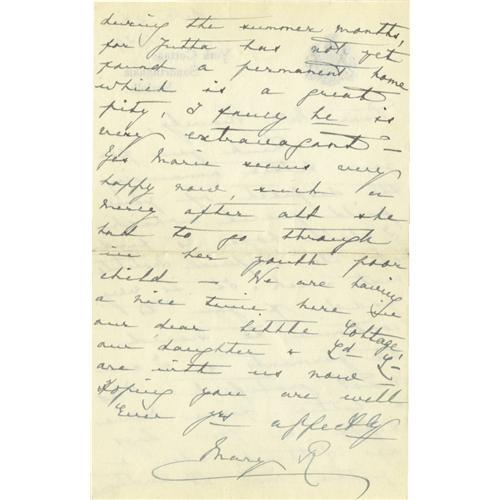 during the summer months,
for Jutta has not yet
found a permanent home
which is a great
pity, I fancy he is
very extravagant –
Yes Marie seems very
happy now, such a
mercy after all she
had to go through
in her youth poor
child – We are having
a nice time here in
our dear little Cottage,
our daughter & Ld L–
are with us now –
Hoping you are well
Ever yrs affectly
Mary R